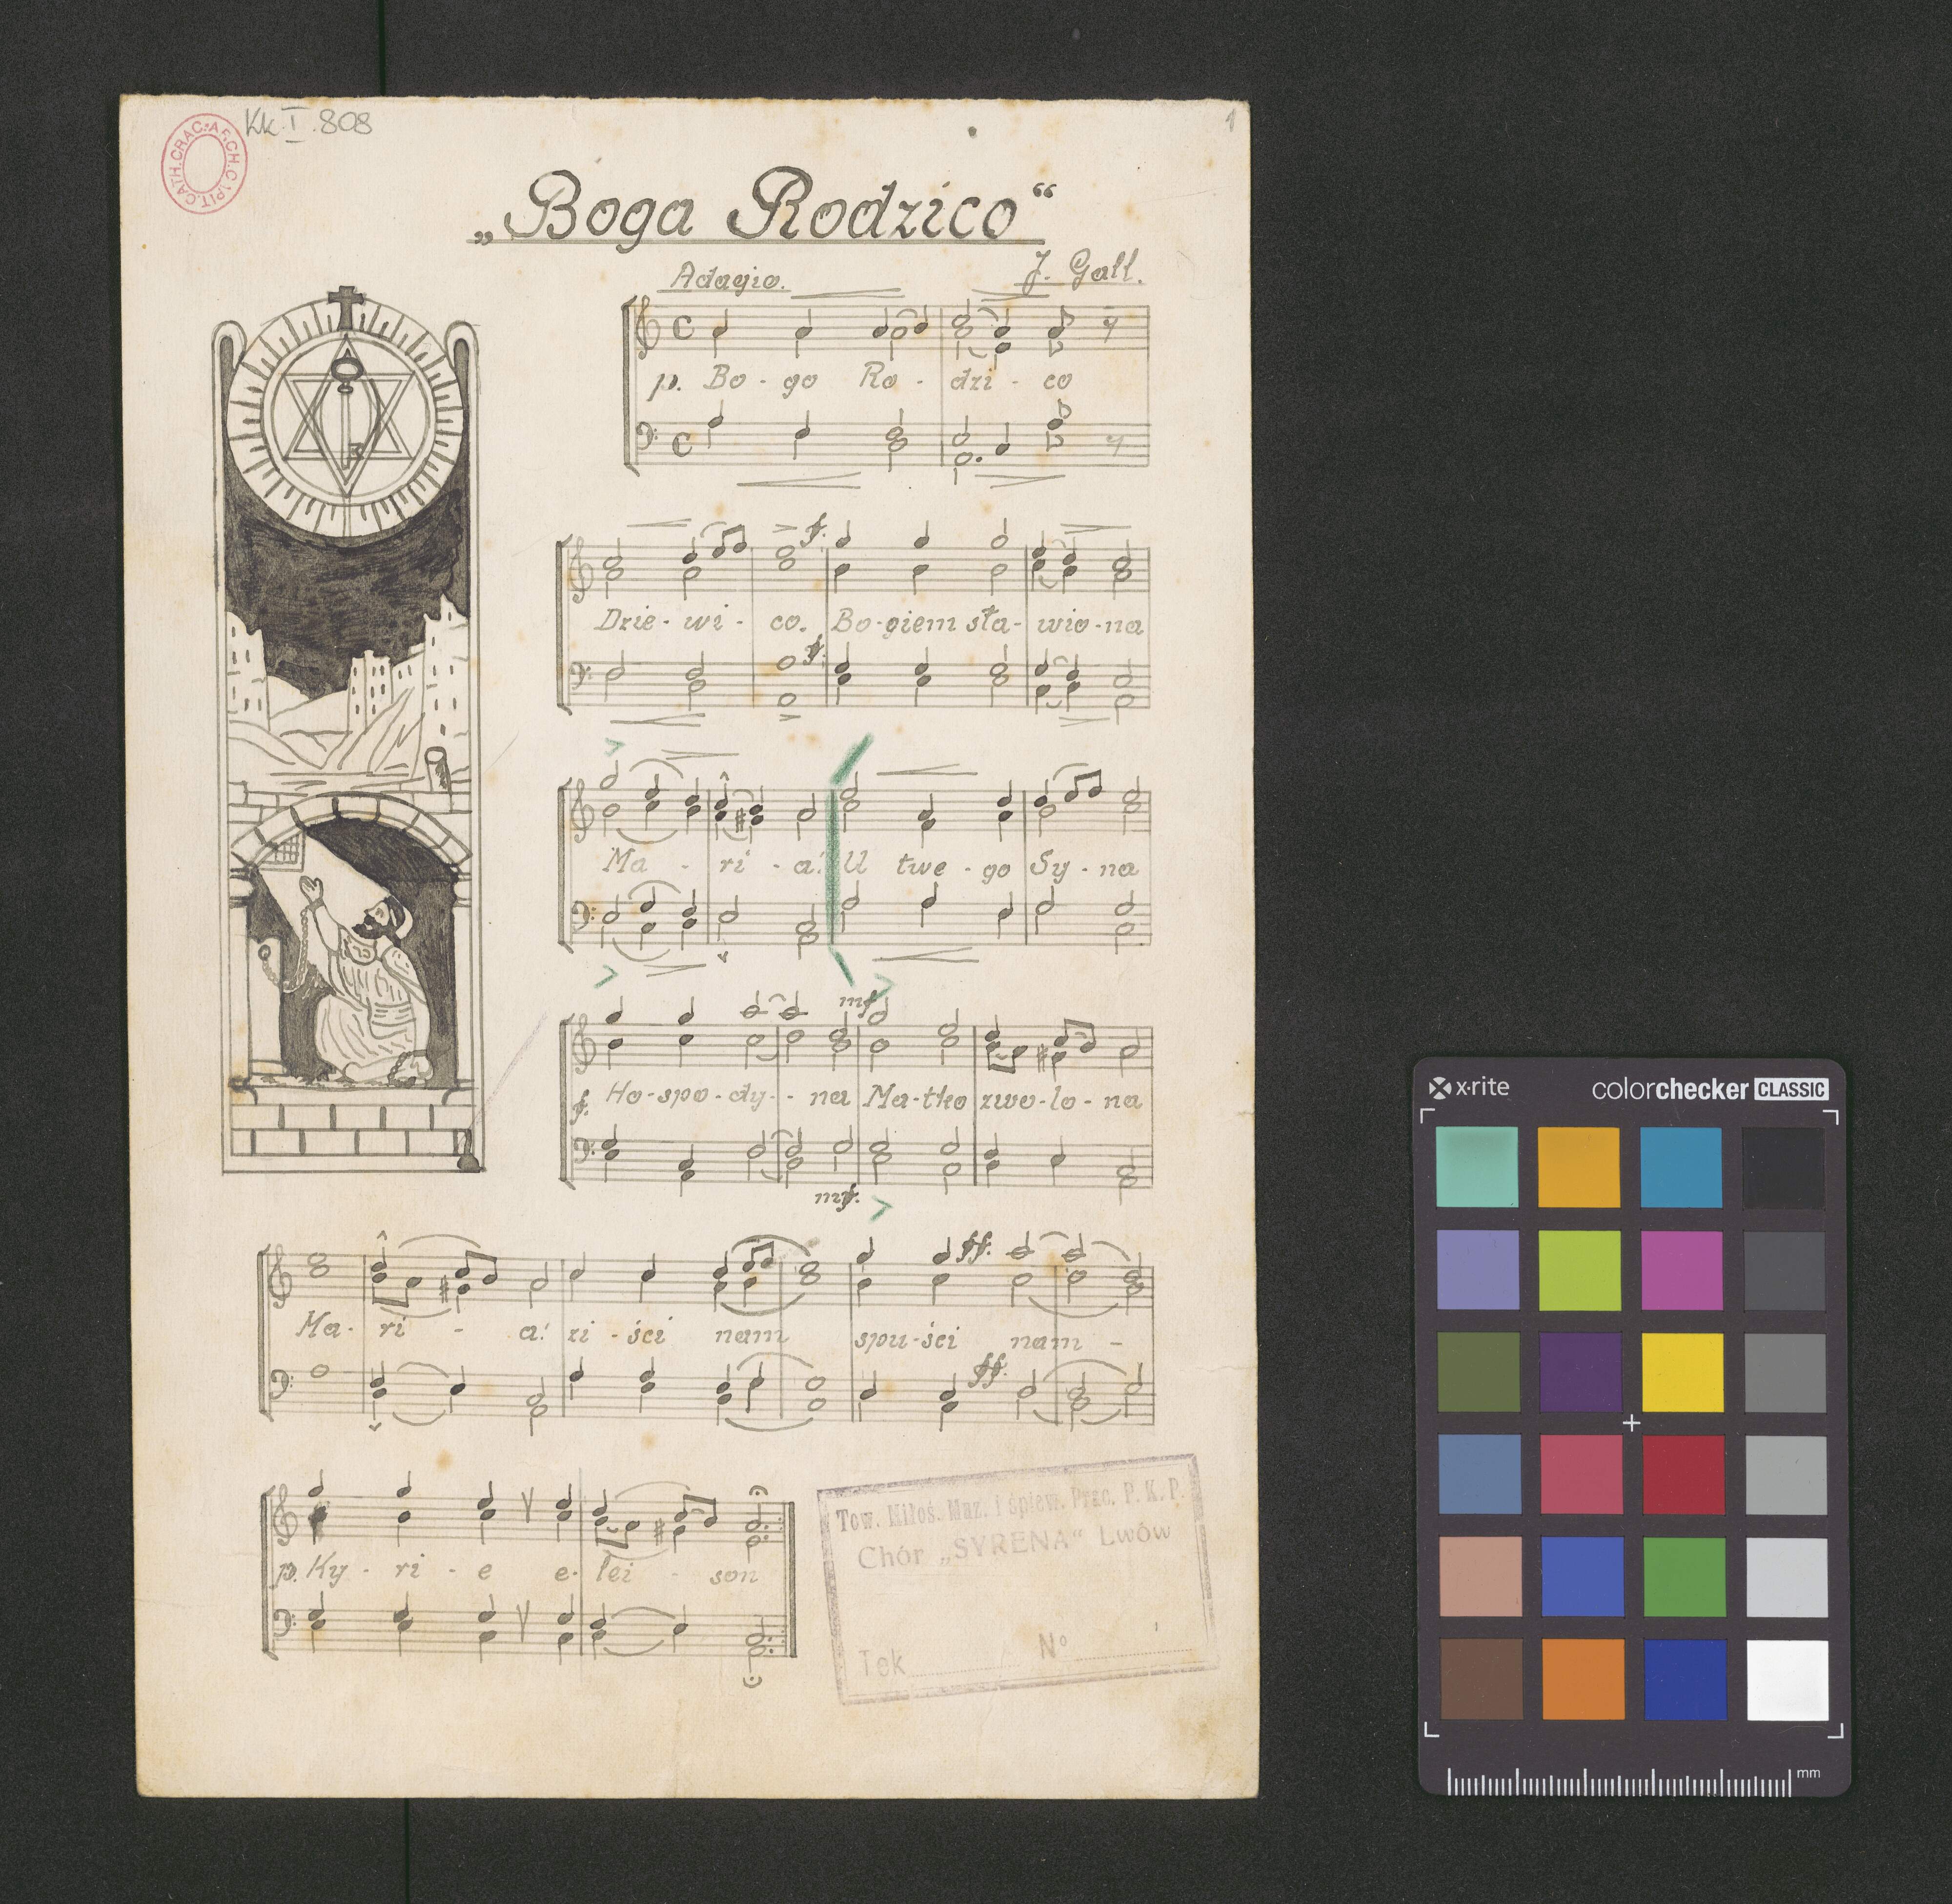 Kk. I. 808
1
ARCH. CAPIT. CATH. CRAC.
„Boga Rodzico“
Adagio.
J. Gall.
p. Bo - go Ro - dzi - co
Drie - wi - co. Bo - giem sła - wio - na
f.
f.
Ma - ri - a! U twe - go Sy - na
mf
f. Ho - spo - dy - - na Ma - tko zwo - lo - na
mf.
ff.
Ma - ri - a! zi - ści nam spu - ści nam -
ff.
p. Ky - ri - e e - lei - son
Tow. Miłoś. Muz. i śpiew. Prac. P. K. P.
Chór „SYRENA“ Lwów
Tek No
x·rite colorchecker CLASSIC
mm